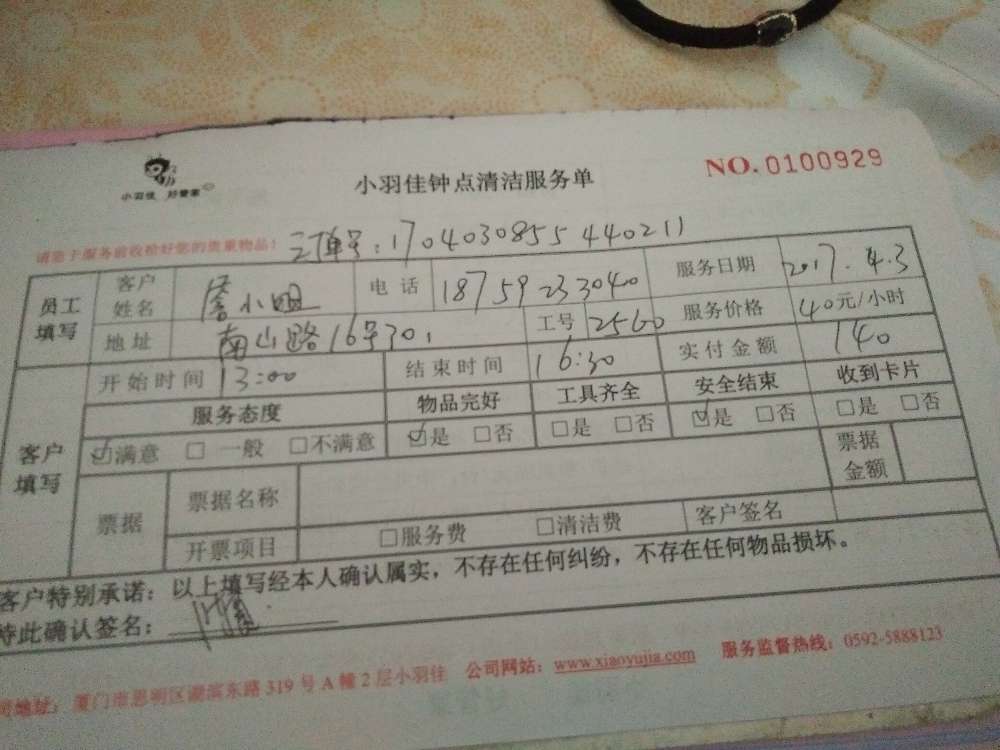 小羽佳 好管家
小羽佳钟点清洁服务单
NO. 0100929
请您于服务前收拾好您的贵重物品!
订单号:1704030855440211
员工填写
客户姓名 詹小姐 电话 18759233040 服务日期 2017.4.3
地址 南山路16号301 工号 2560 服务价格 40元/小时
客户填写
开始时间 13:00 结束时间 16:30 实付金额 140
服务态度 物品完好 工具齐全 安全结束 收到卡片
☑满意 □一般 □不满意 ☑是 □否 □是 □否 ☑是 □否 □是 □否
票据 票据名称 票据金额
开票项目 □服务费 □清洁费 客户签名
客户特别承诺:以上填写经本人确认属实,不存在任何纠纷,不存在任何物品损坏。
特此确认签名:
司地址:厦门市思明区湖滨东路319号A幢2层小羽佳 公司网站:www.xiaoyujia.com 服务监督热线:0592-5888123